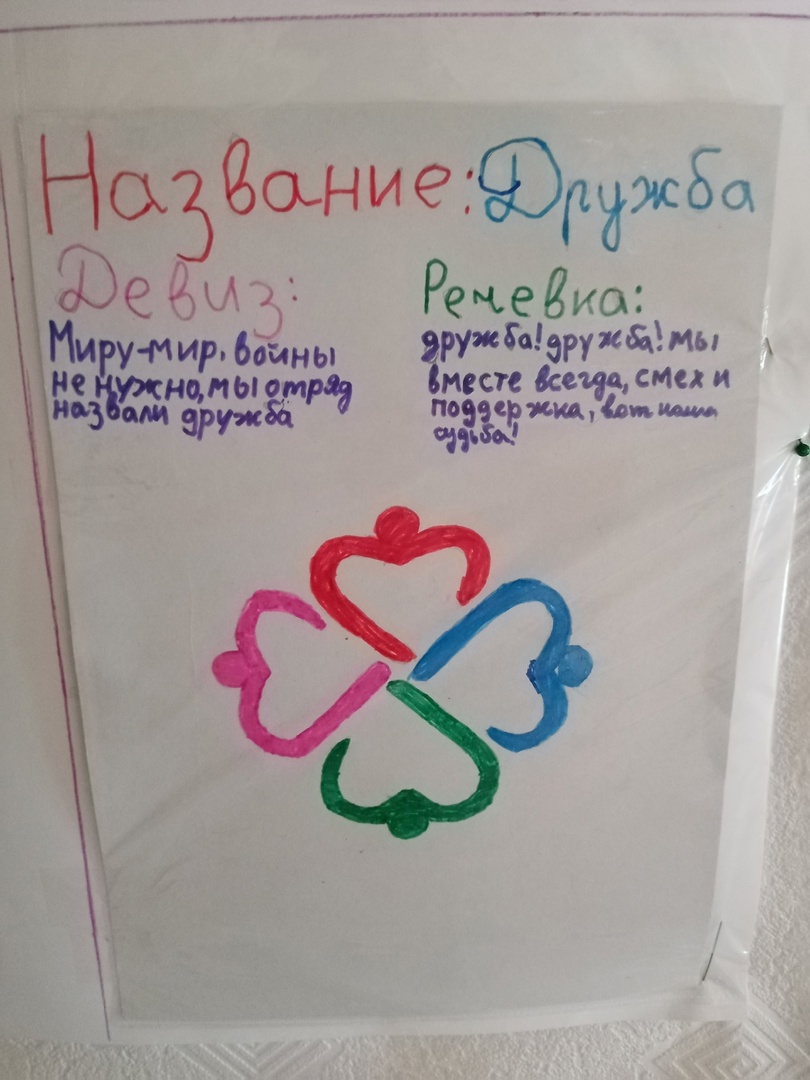 Название: Дружба
Девиз:
Миру-мир, войны
не нужно, мы отряд
назвали дружба
Речевка:
дружба! дружба! мы
вместе всегда, смех и
поддержка, вот наша
судьба!